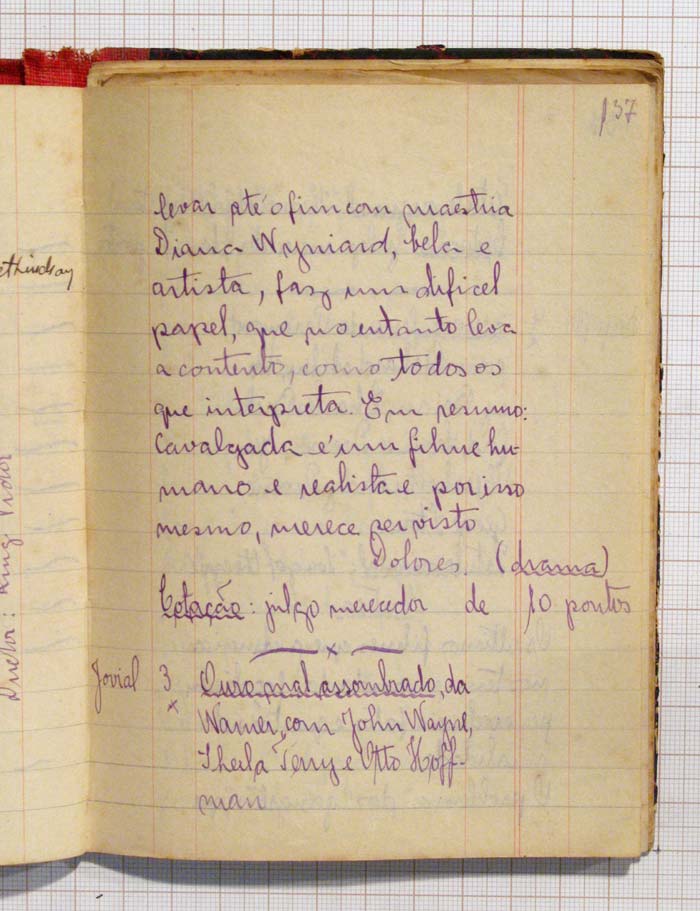 137
levar até o fim com maestria
Diana Wyniard, bela e
artista, faz um dificel
papel, que no entanto leva
a contento, como todos os
que interpreta. Em resumo:
Cavalgada é um filme hu-
mano e realista e por isso
mesmo, merece ser visto
Dolores. (drama)
Cotação: julgo merecedor de 10 pontos
x
Jovial 3 Ouro mal assombrado, da
x Warner, com John Wayne,
Sheila Terry e Otto Hoff
man
Diretor: King Vidor